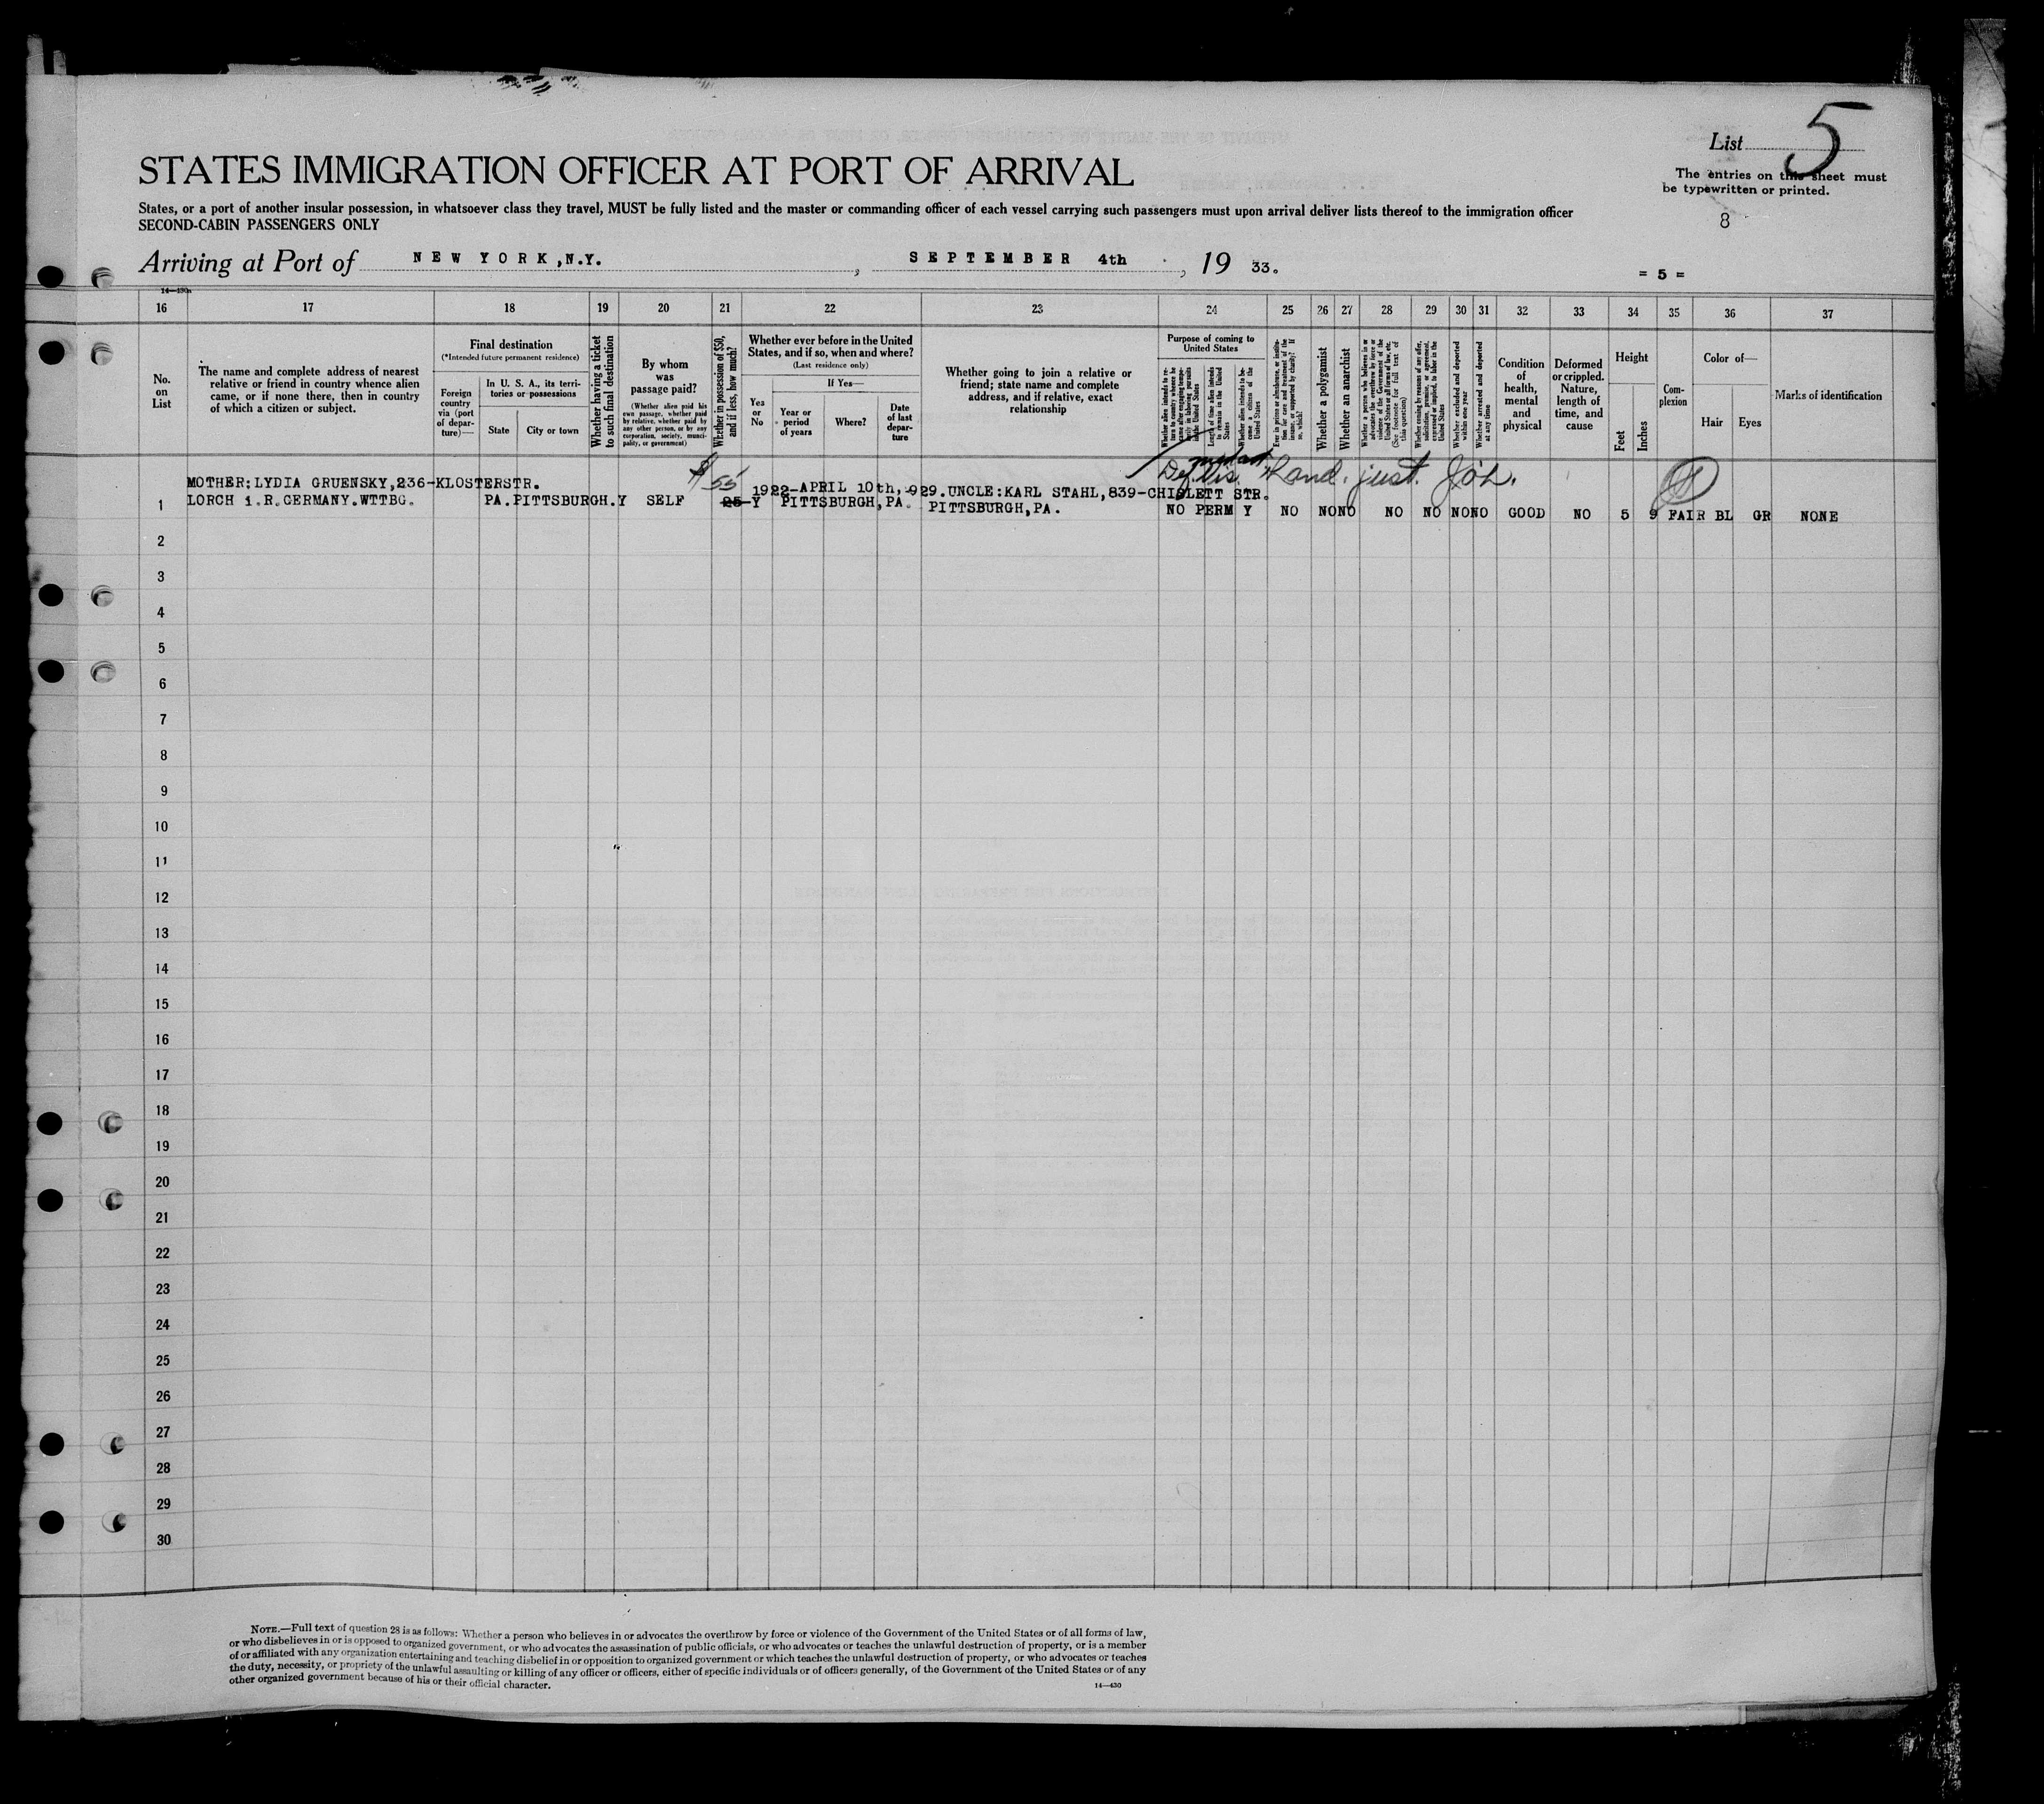 List 5
The entries on this sheet must
be typewritten or printed.
8
STATES IMMIGRATION OFFICER AT PORT OF ARRIVAL
States, or a port of another insular possession, in whatsoever class they travel, MUST be fully listed and the master or commanding officer of each vessel carrying such passengers must upon arrival deliver lists thereof to the immigration officer
SECOND-CABIN PASSENGERS ONLY
Arriving at Port of NEW YORK, N.Y. , SEPTEMBER 4th , 19 33.
= 5 =
14—430a
16 17 18 19 20 21 22 23 24 25 26 27 28 29 30 31 32 33 34 35 36 37
No. on List
The name and complete address of nearest relative or friend in country whence alien came, or if none there, then in country of which a citizen or subject.
Final destination
(*Intended future permanent residence)
Foreign country via (port of departure)—
In U. S. A., its territories or possessions
State
City or town
Whether having a ticket to such final destination
By whom was passage paid?
(Whether alien paid his own passage, whether paid by relative, whether paid by any other person, or by any corporation, society, municipality, or government)
Whether in possession of $50, and if less, how much?
Whether ever before in the United States, and if so, when and where?
(Last residence only)
Yes or No
If Yes—
Year or period of years
Where?
Date of last departure
Whether going to join a relative or friend; state name and complete address, and if relative, exact relationship
Purpose of coming to United States
Whether alien intends to return to country whence he came after engaging temporarily in laboring pursuits in the United States
Length of time alien intends to remain in the United States
Whether alien intends to become a citizen of the United States
Ever in prison or almshouse, or institution for care and treatment of the insane, or supported by charity? If so, which?
Whether a polygamist
Whether an anarchist
Whether a person who believes in or advocates the overthrow by force or violence of the Government of the United States or all forms of law, etc. (See footnote for full text of this question)
Whether coming by reasons of any offer, solicitation, promise, or agreement, expressed or implied, to labor in the United States
Whether excluded and deported within one year
Whether arrested and deported at any time
Condition of health, mental and physical
Deformed or crippled. Nature, length of time, and cause
Height
Feet
Inches
Complexion
Color of—
Hair
Eyes
Marks of identification
MOTHER:LYDIA GRUENSKY,236-KLOSTERSTR.
$55
1922-APRIL 10th,-929. UNCLE:KARL STAHL,839-CHISLETT STR.
1 LORCH i.R.GERMANY.WTTBG. PA. PITTSBURGH. Y SELF 25 Y PITTSBURGH,PA. PITTSBURGH,PA. NO PERM Y NO NO NO NO NO NO NO GOOD NO 5 9 FAIR BL GR NONE
2
3
4
5
6
7
8
9
10
11
12
13
14
15
16
17
18
19
20
21
22
23
24
25
26
27
28
29
30
NOTE.—Full text of question 28 is as follows: Whether a person who believes in or advocates the overthrow by force or violence of the Government of the United States or of all forms of law,
or who disbelieves in or is opposed to organized government, or who advocates the assassination of public officials, or who advocates or teaches the unlawful destruction of property, or is a member
of or affiliated with any organization entertaining and teaching disbelief in or opposition to organized government or which teaches the unlawful destruction of property, or who advocates or teaches
the duty, necessity, or propriety of the unlawful assaulting or killing of any officer or officers, either of specific individuals or of officers generally, of the Government of the United States or of any
other organized government because of his or their official character.
14—430